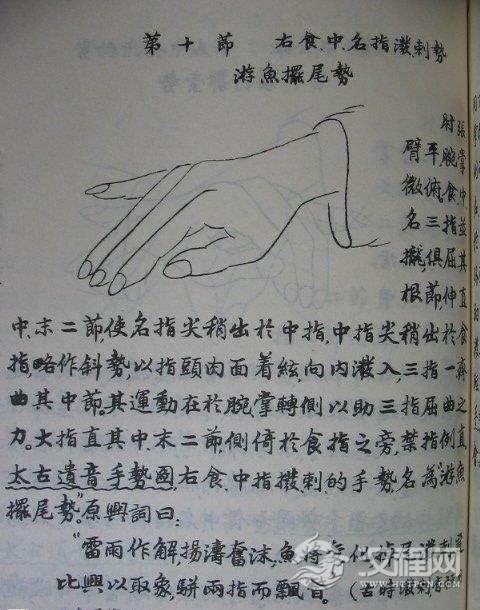 第十節 右食、中、名指潑剌勢
游魚擺尾勢
肘張
臂平,腕掌
微俯,食中
名三指並
攏,俱屈其
根節,伸直
中、末二節,使名指尖稍出於中指,中指尖稍出於食
指,略作斜勢,以指頭肉面着絃,向內潑入,三指一齊
曲其中節,其運動在於腕,掌轉側以助三指屈曲之
力。大指直其中、末二節,側倚於食指之旁,禁指例直
太古遺音手勢圖,右食、中指撥剌的手勢,名為"游魚
擺尾勢"。原興詞曰:
"雷雨作解,揚濤奮沫,魚將化掉尾潑剌
比興以取象,駢兩指而飄(古時潑剌
文程网